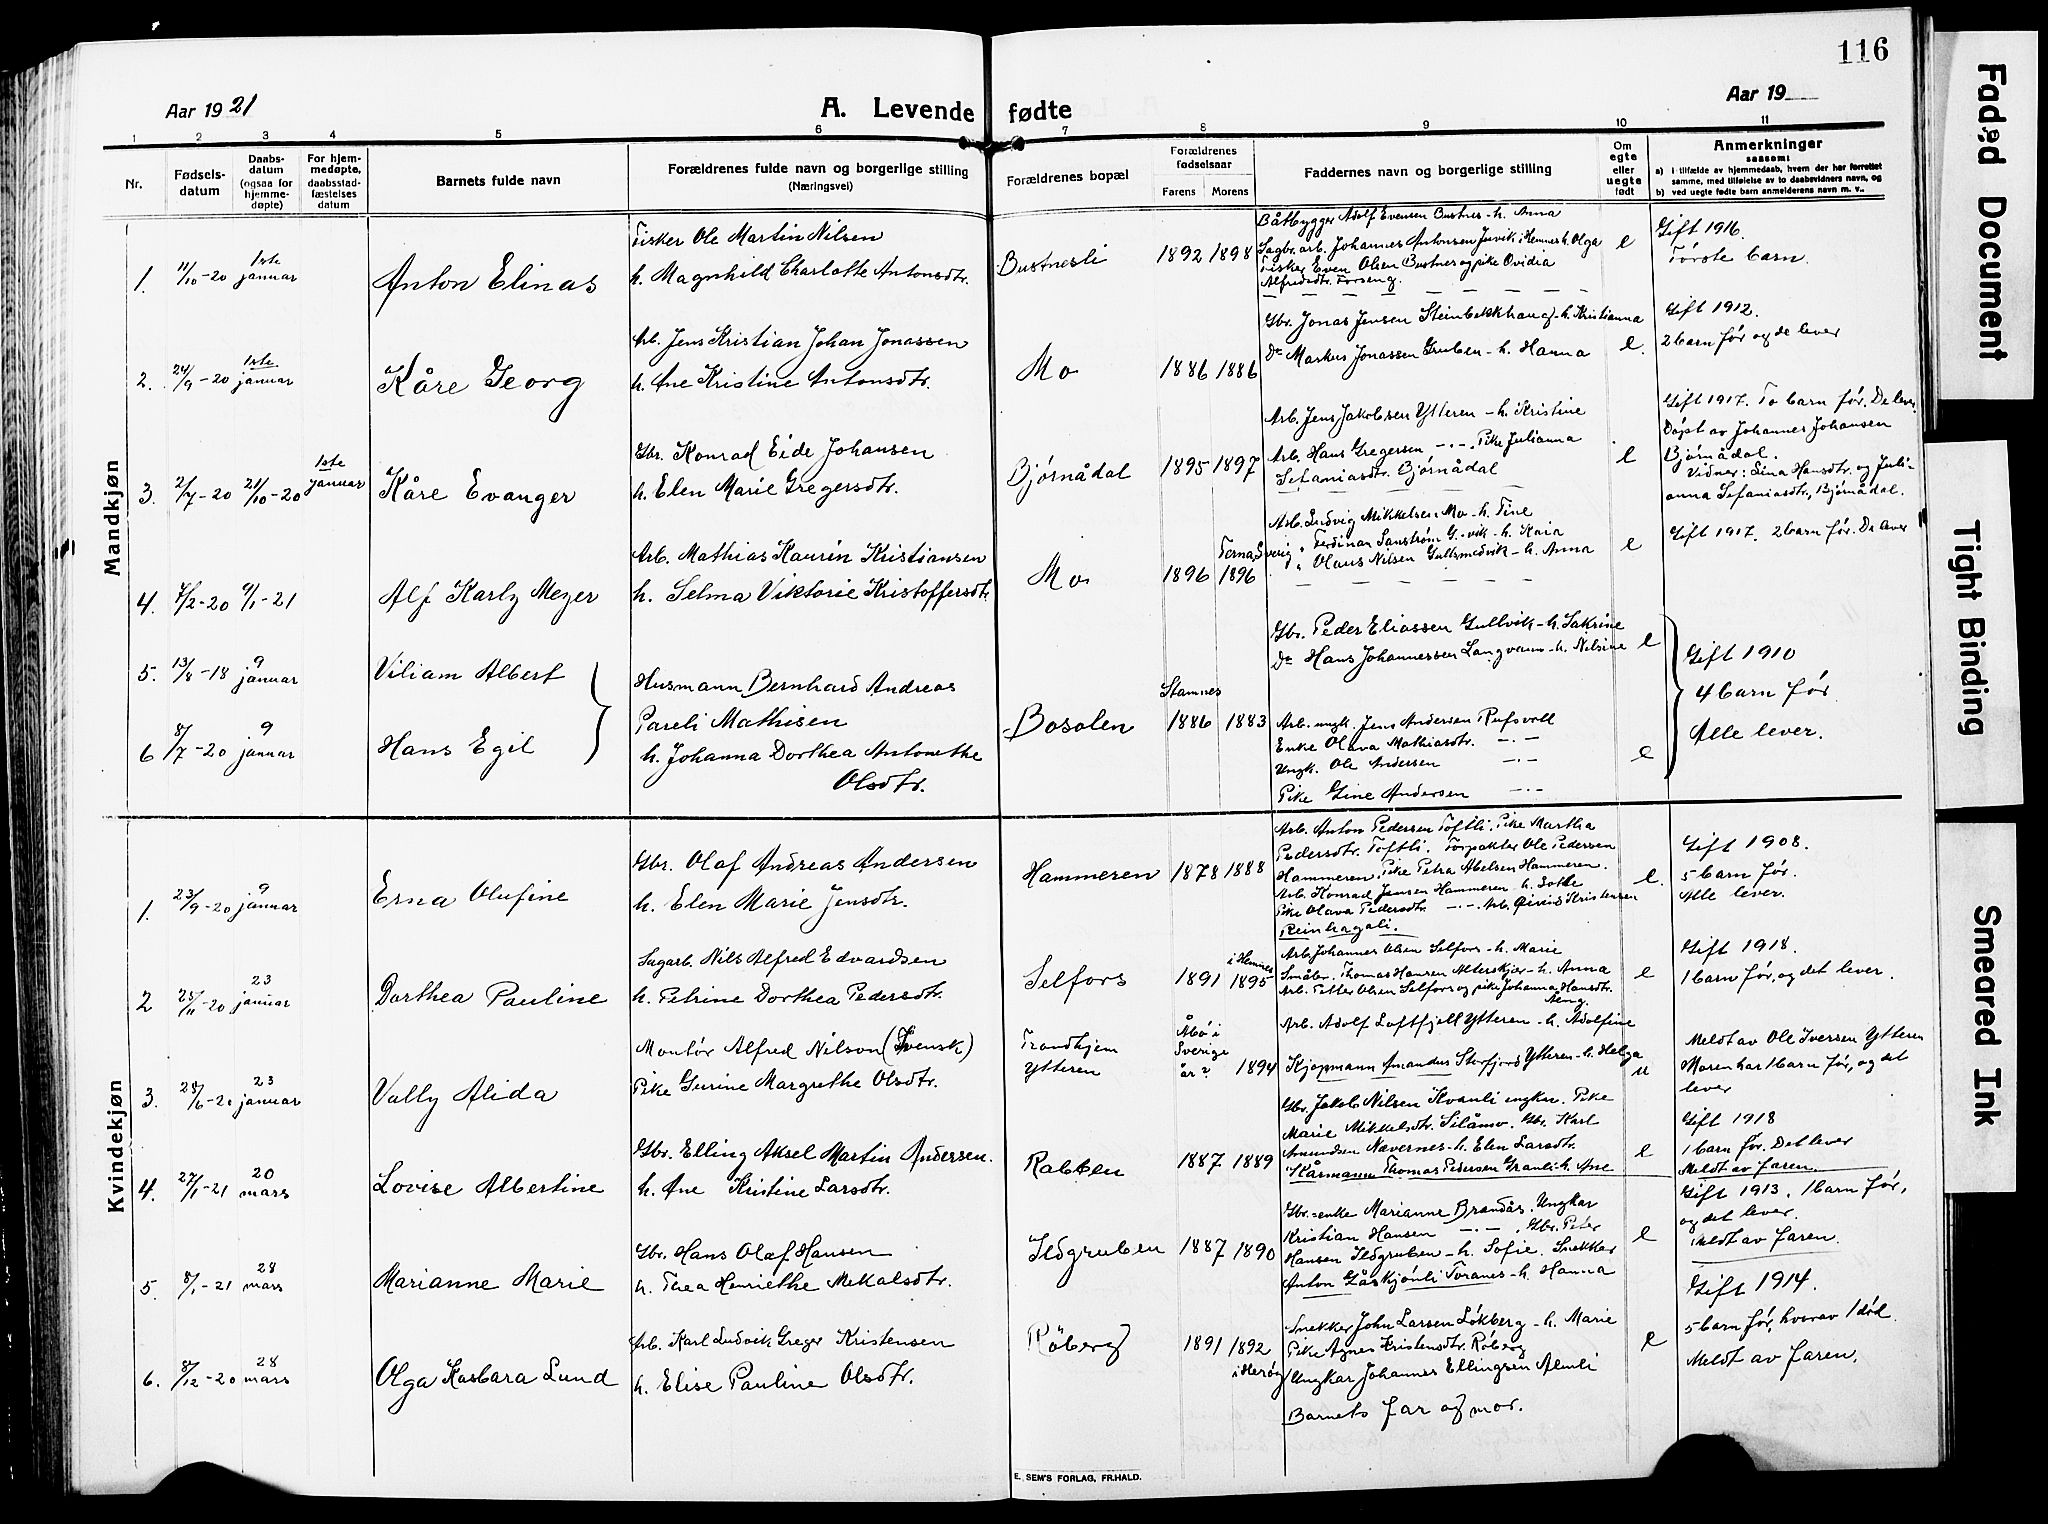 116
Aar 1921
A. Levende fødte
Aar 19
1 2 3 4 5 6 7 8 9 10 11
Nr.
Fødsels-
datum
Daabs-
datum
(ogsaa for
hjemme-
døpte)
For hjem-
medøpte,
daabsstad-
fæstelses
datum
Barnets fulde navn
Forældrenes fulde navn og borgerlige stilling
(Næringsvei)
Forældrenes bopæl
Forældrenes
fødselsaar
Farens Morens
Faddernes navn og borgerlige stilling
Om
egte
eller
uegte
født
Anmerkninger
saasom:
a) i tilfælde av hjemmedaab, hvem der har forrettet
samme, med tilføielse av to daabsvidners navn, og
b) ved uegte fødte barn anmelderens navn m. v..
Mandkjøn
1. 11/10-20 1ste januar
Anton Elinas
Fisker Ole Martin Nilsen
h. Magnhild Charlotte Antonsdtr.
Bustnesli
1892 1898
Båtbygger Adolf Evensen Bustnes - h. Anna
Sagbr.arb. Johannes Antonsen Juvik i Hemnes h. Olga
Fisker Even Olsen Bustnes og pike Ovidia
Alfredsdtr. Forseng.
e
Gift 1916.
Første barn.
2. 24/9-20 1ste januar
Kåre Georg
Arb. Jens Kristian Johan Jonassen
h. Ane Kristine Antonsdtr.
Mo
1886 1886
Gbr. Jonas Jensen Steinbekkhaug - h. Kristianna
Do Markus Jonassen Gruben - h. Hanna
e.
Gift 1912.
2 barn før og de lever
3. 2/7-20 21/10-20 1ste januar
Kåre Evanger
Gbr. Konrad Eide Johansen
h. Elen Marie Gregersdtr.
Bjørnådal
1895 1897
Arb. Jens Jakobsen Ytteren - h. Kristine
Arb. Hans Gregersen -·-. Pike Julianna
Sefaniasdtr. Bjørnådal
e
Gift 1917. To barn før. De lever.
Døpt av Johannes Johansen
Bjørnådal.
Vidner: Lina Hansdtr. og Juli-
anna Sefaniasdtr., Bjørnådal.
4. 7/2-20 9/1-21
Alf Karly Meyer
Arb. Mathias Kaurin Kristiansen
h. Selma Viktorie Kristoffersdtr.
Mo
1896 1896
Arb. Ludvig Mikkelsen Mo - h. Tine
h. Kaia
Olaus Nilsen Gullsmedvik - h. Anna
e
Gift 1917. 2 barn før. De lever
5. 13/8-18 9 januar
Viliam Albert
6 8/7-20 9 januar
Hans Egil
Husmann Bernhard Andreas
Pareli Mathisen
h. Johanna Dorthea Antonethe
Olsdtr.
Bosolen
Stamnes
1886 1883
Gbr. Peder Eliassen Gullvik - h. Sakrine
Do Hans Johannessen Langvann - h. Nilsine
e
Arb. ungk. Jens Andersen Rufsvoll
Enke Olava Mathiasdtr. -·-
Ungk. Ole Andersen -·-
Pike Gine Andersen -·-
e
Gift 1910
4 barn før
Alle lever.
Kvindekjøn
1. 23/9-20 9 januar
Erna Olufine
Gbr. Olaf Andreas Andersen
h. Elen Marie Jensdtr.
Hammeren
1878 1888
Arb. Anton Pedersen Toftli. Pike Martha
Pedersdtr. Toftli. Forpakter Ole Pedersen
Hammeren. Pike Petra Abelsen Hammeren.
Arb. Konrad Jensen Hammeren - h. Lotte
Pike Olava Pedersdtr. -·-. Arb. Øivind Kristensen
Reinhagali.
e.
Gift 1908.
5 barn før.
Alle lever.
2 25/11-20 23 januar
Dorthea Pauline
Sagarb. Nils Alfred Edvardsen
h. Petrine Dorthea Pedersdtr.
Selfors
1891 i Hemnes 1895
Arb. Johannes Olsen Selfors - h. Marie
Småbr. Thomas Hansen Alterskjær - h. Anna
Arb. Petter Olsen Selfors og pike Johanna Hansdtr.
Aeng.
e
Gift 1918.
1 barn før, og det lever.
3. 28/6-20 23 januar
Vally Alida
Montør Alfred Nilson (Svensk)
Pike Gurine Margrethe Olsdtr.
Trondhjem
Ytteren
Åbo i
Sverige
år?
1894
Arb. Adolf Loftfjell Ytteren - h. Adolfine
Kjøpmann Amandus Storfjord Ytteren - h. Helga
u
Meldt av Ole Iversen Ytteren
Moren har 1 barn før, og det
lever
4. 27/1-21 20 mars
Lovise Albertine
Gbr. Elling Aksel Martin Andersen.
h. Ane Kristine Larsdtr.
Rabben
1887 1889
Gbr. Jakob Nilsen Kvanli ungkar. Pike
Marie Mikkelsdtr. Silåmo. Gbr. Karl
Amundsen Nævernes - h. Elen Larsdtr.
Kårmann Thomas Pedersen Granli - h. Ane
e
Gift 1918
1 barn før. Det lever
Meldt av faren.
5. 8/1-21 28 mars
Marianne Marie
Gbr. Hans Olaf Hansen
h. Thea Henriethe Mekalsdtr.
Ildgruben
1887 1890
Gbr.-enke Marianne Brandås. Ungkar
Kristian Hansen -·-. Gbr. Peter
Hansen Ildgruben - h. Sofie. Snekker
Anton Gåskjønli Toranes - h. Hanna
e
Gift 1913. 1 barn før,
og det lever.
Meldt av faren.
6. 8/12-20 28 mars
Olga Kasbara Lund
Arb. Karl Ludvik Greger Kristensen
h. Elise Pauline Olsdtr.
Røberg
1891 1892
i Herøy
Snekker John Larsen Løkberg - h. Marie
Pike Agnes Kristensdtr. Røberg
Ungkar Johannes Ellingsen Almli
Barnets far og mor.
e
Gift 1914.
5 barn før, hvorav 1 død.
Meldt av faren.
E. SEM'S FORLAG, FR.HALD.
Faded Document
Tight Binding
Smeared Ink